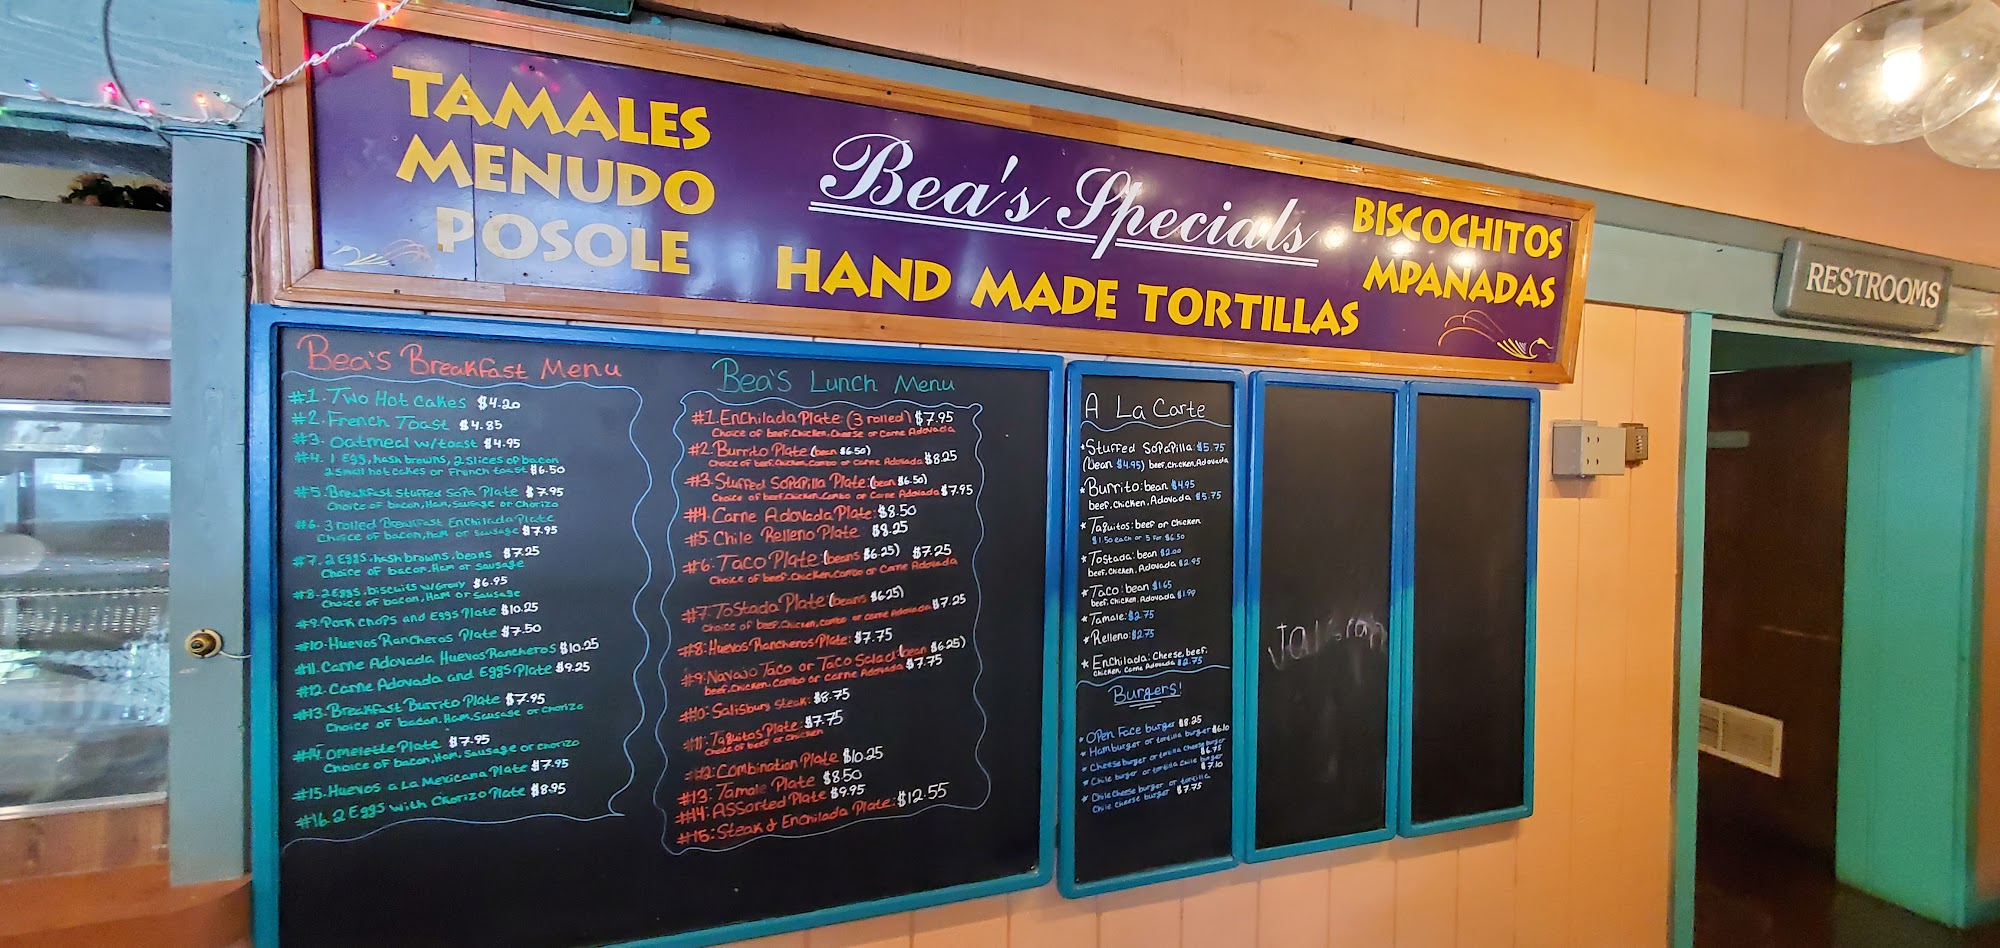 TAMALES
MENUDO
POSOLE
Bea's Specials
HAND MADE TORTILLAS
BISCOCHITOS
MPANADAS
RESTROOMS
Bea's Breakfast Menu
#1. Two Hot Cakes $4.20
#2. French Toast $4.85
#3. Oatmeal w/toast $4.95
#4. 1 Egg, hash browns, 2 slices of bacon
2 small hot cakes or French toast $6.50
#5. Breakfast Stuffed Sopa Plate $7.95
Choice of bacon, Ham, Sausage or Chorizo
#6. 3 rolled Breakfast Enchilada Plate
Choice of bacon, ham or Sausage $7.95
#7. 2 Eggs, hash browns, beans $7.25
Choice of bacon, Ham or Sausage
#8. 2 Eggs, biscuits w/Gravy $6.95
Choice of bacon, Ham or Sausage
#9. Pork chops and Eggs Plate $10.25
#10. Huevos Rancheros Plate $7.50
#11. Carne Adovada Huevos Rancheros $10.25
#12. Carne Adovada and Eggs Plate $9.25
#13. Breakfast Burrito Plate $7.95
Choice of bacon, Ham, Sausage or Chorizo
#14. Omelette Plate $7.95
Choice of bacon, Ham, Sausage or Chorizo
#15. Huevos a La Mexicana Plate $7.95
#16. 2 Eggs with Chorizo Plate $8.95
Bea's Lunch Menu
#1. Enchilada Plate: (3 rolled) $7.95
Choice of beef, Chicken, Cheese or Carne Adovada
#2. Burrito Plate (bean $6.50)
Choice of beef, Chicken, Combo or Carne Adovada $8.25
#3. Stuffed Sopapilla Plate: (bean $6.50)
Choice of beef, Chicken, Combo or Carne Adovada $7.95
#4. Carne Adovada Plate: $8.50
#5. Chile Relleno Plate $8.25
#6: Taco Plate: (beans $6.25) $7.25
Choice of beef, Chicken, Combo or Carne Adovada
#7: Tostada Plate (beans $6.25)
Choice of beef, Chicken, combo or carne Adovada $7.25
#8: Huevos Rancheros Plate: $7.75
#9: Navajo Taco or Taco Salad (bean $6.25)
beef, Chicken, Combo or Carne Adovada $7.75
#10: Salisbury Steak: $8.75
#11: Taquitos Plate: $7.75
Choice of beef or Chicken
#12: Combination Plate $10.25
#13: Tamale Plate $8.50
#14: Assorted Plate $9.95
#15: Steak & Enchilada Plate: $12.55
A La Carte
*Stuffed Sopapilla: $5.75
(bean $4.95) beef, Chicken, Adovada
*Burrito: bean $4.95
beef, Chicken, Adovada $5.75
*Taquitos: beef or Chicken
$1.50 each or 5 for $6.50
*Tostada: bean $2.00
beef, Chicken, Adovada $2.95
*Taco: bean $1.65
beef, Chicken, Adovada $1.99
*Tamale: $2.75
*Relleno: $2.75
*Enchilada: Cheese, beef,
Chicken, Carne Adovada $2.75
Burgers!
* Open Face burger $8.25
* Hamburger or tortilla burger $6.10
* Cheese burger or tortilla Cheese burger $6.75
* Chile burger or tortilla Chile burger $7.10
* Chile Cheese burger or tortilla
Chile Cheese burger $7.75